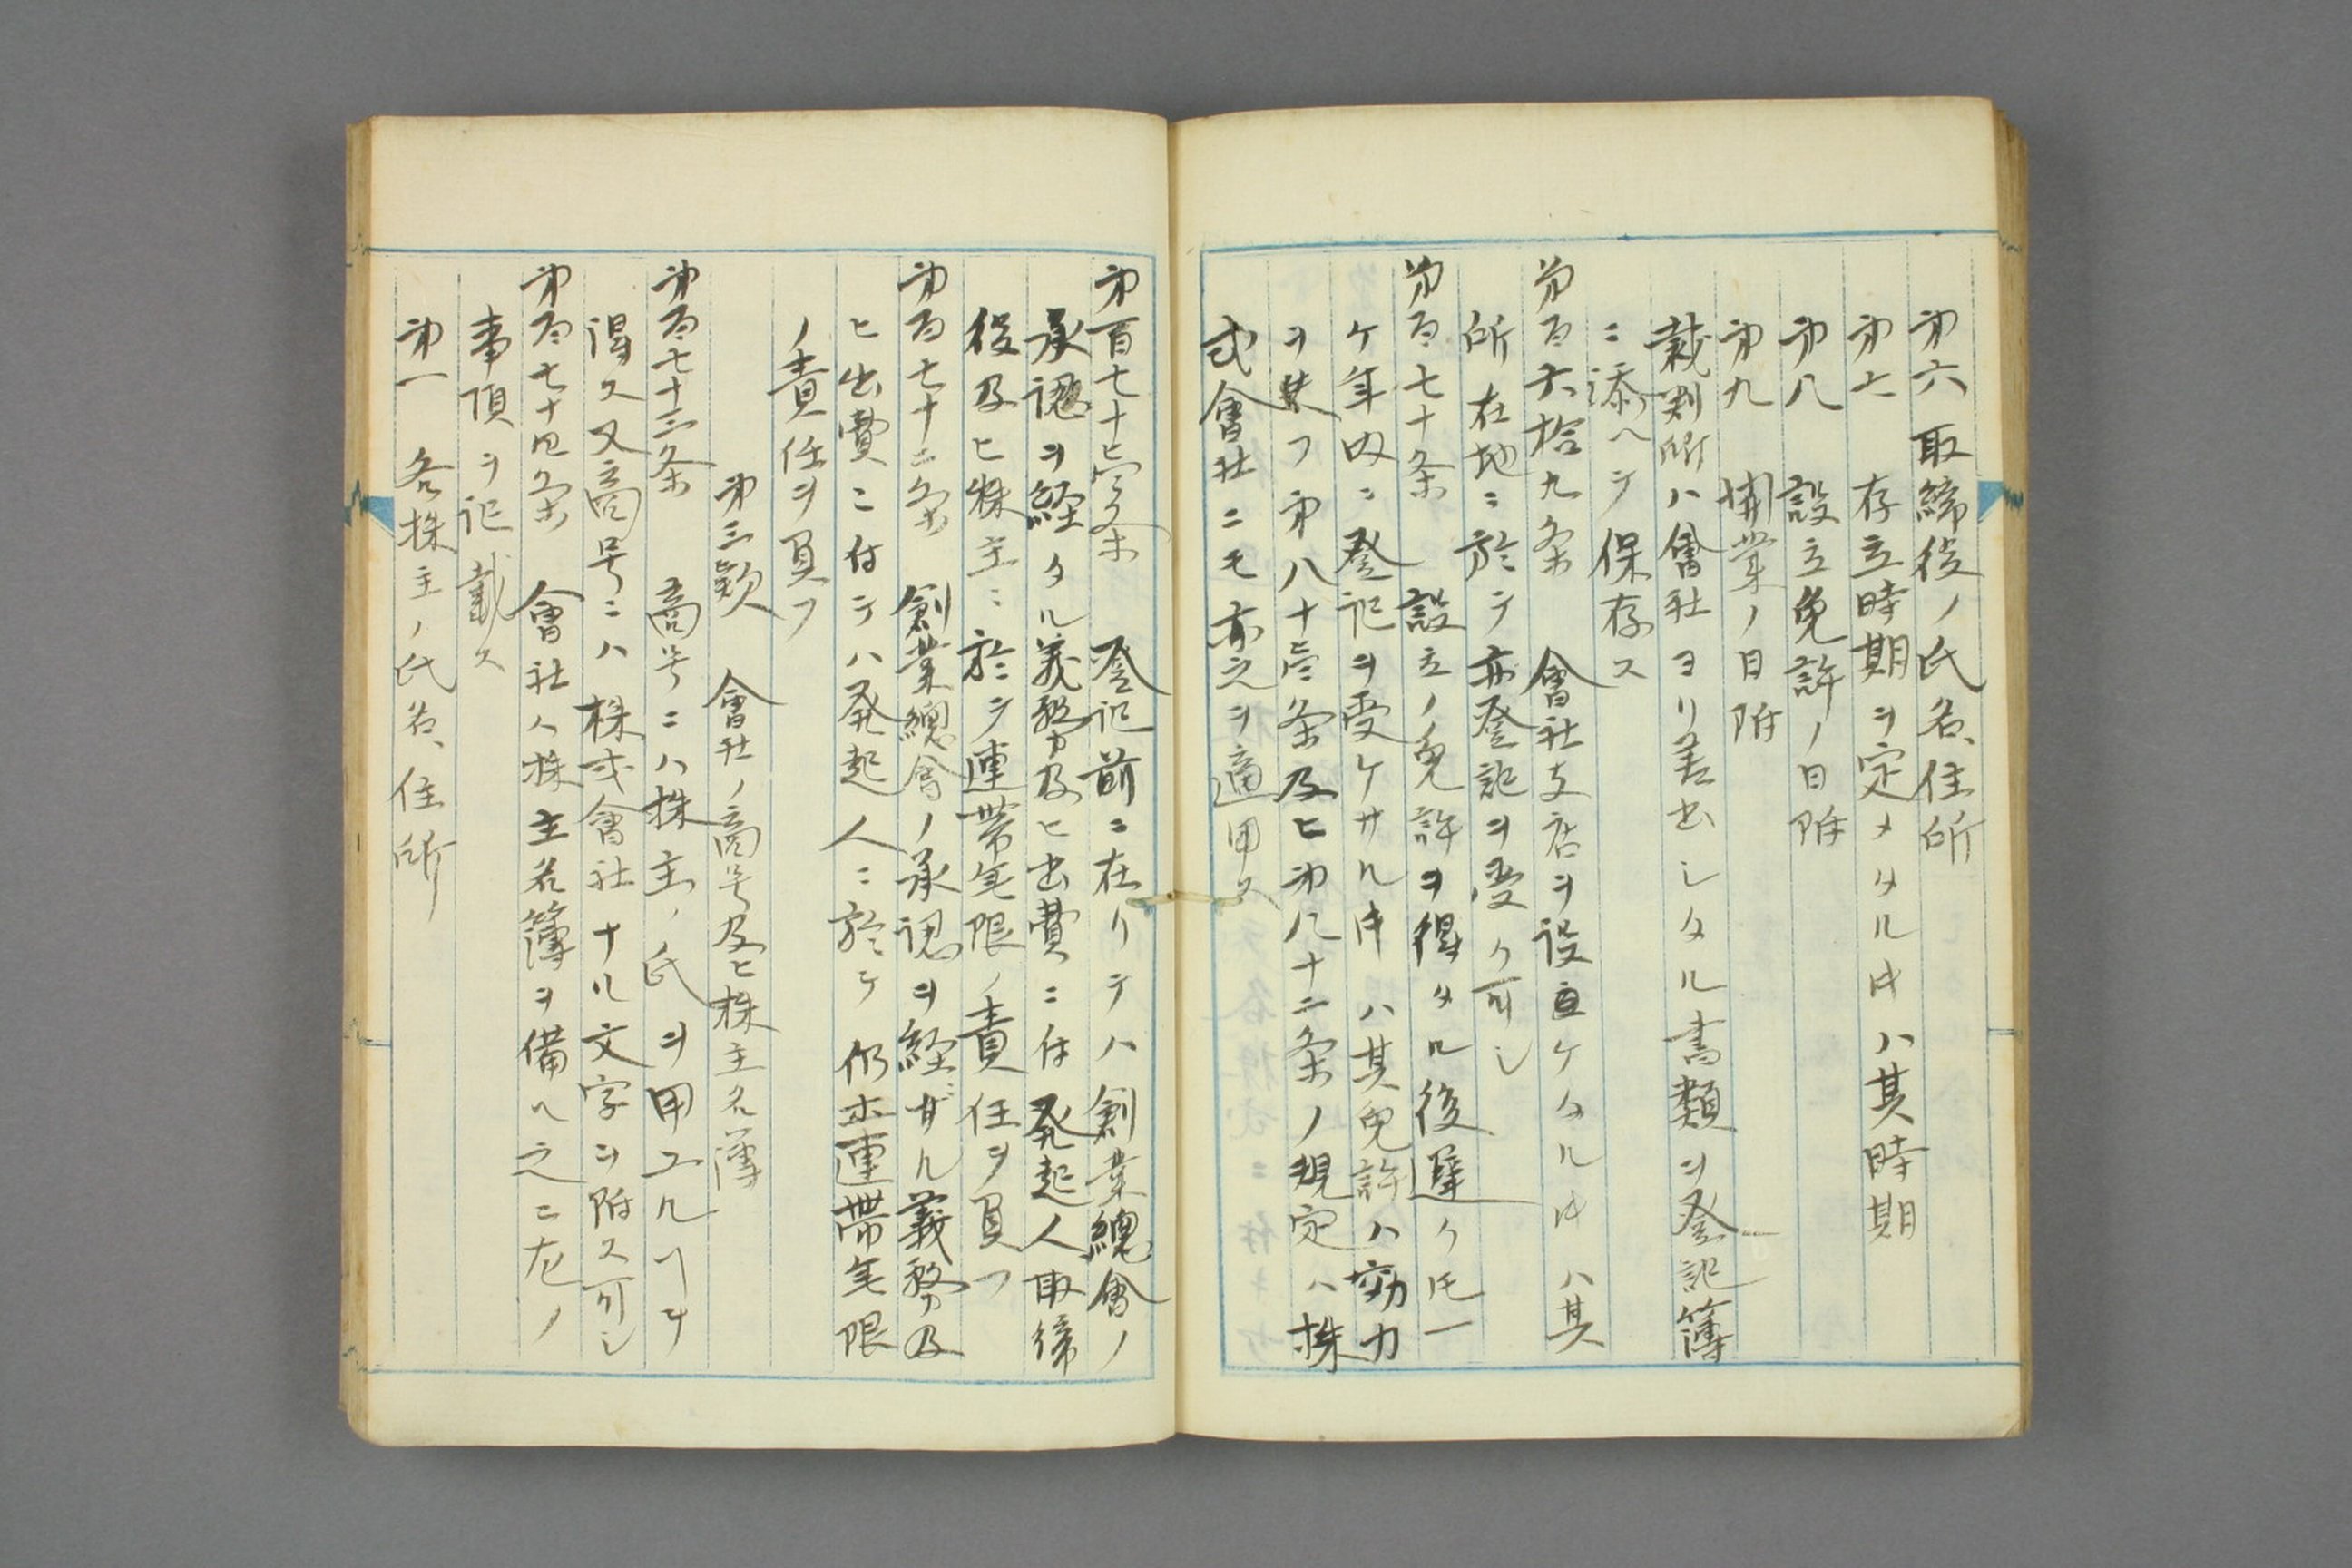 第六 取締役ノ氏名、住所
第七 存立時期ヲ定メタルㇳキハ其時期
第八 設立免許ノ日附
第九 開業ノ日附
裁判所ハ會社ヨリ差出シタル書類ヲ登記簿
ニ添ヘテ保存ス
第百六拾九条 會社支店ヲ設立ケタルㇳキハ其
所在地ニ於テ亦登記ヲ受ク可シ
第百七十条 設立ノ免許ヲ得タル後遅クㇳモ一
ケ年内ニ登記ヲ受ケサルㇳキハ其免許ハ効力
ヲ失フ第八十壱条及ヒ第八十二条ノ規定ハ株
式會社ニモ亦之ヲ適用ス
第百七十壱条 登記前ニ在リテハ創業總會ノ
承認ヲ経タル義務及ヒ出費ニ付発起人取締
役及ヒ株主ニ於テ連帯無限ノ責任ヲ負フ
第百七十二条 創業總會ノ承認ヲ経ザル義務及
ヒ出費ニ付テハ発起人ニ於テ仍ホ連帯無限
ノ責任ヲ負フ
第三欵 會社ノ商号及ヒ株主名簿
第百七十三条 商号ニハ株主ノ氏ヲ用ユルヿヲ
得ス又商号ニハ株式會社ナル文字ヲ附ス可シ
第百七十四条 會社ハ株主名簿ヲ備ヘ之ニ左ノ
事項ヲ記載ス
第一 各株主ノ氏名、住所